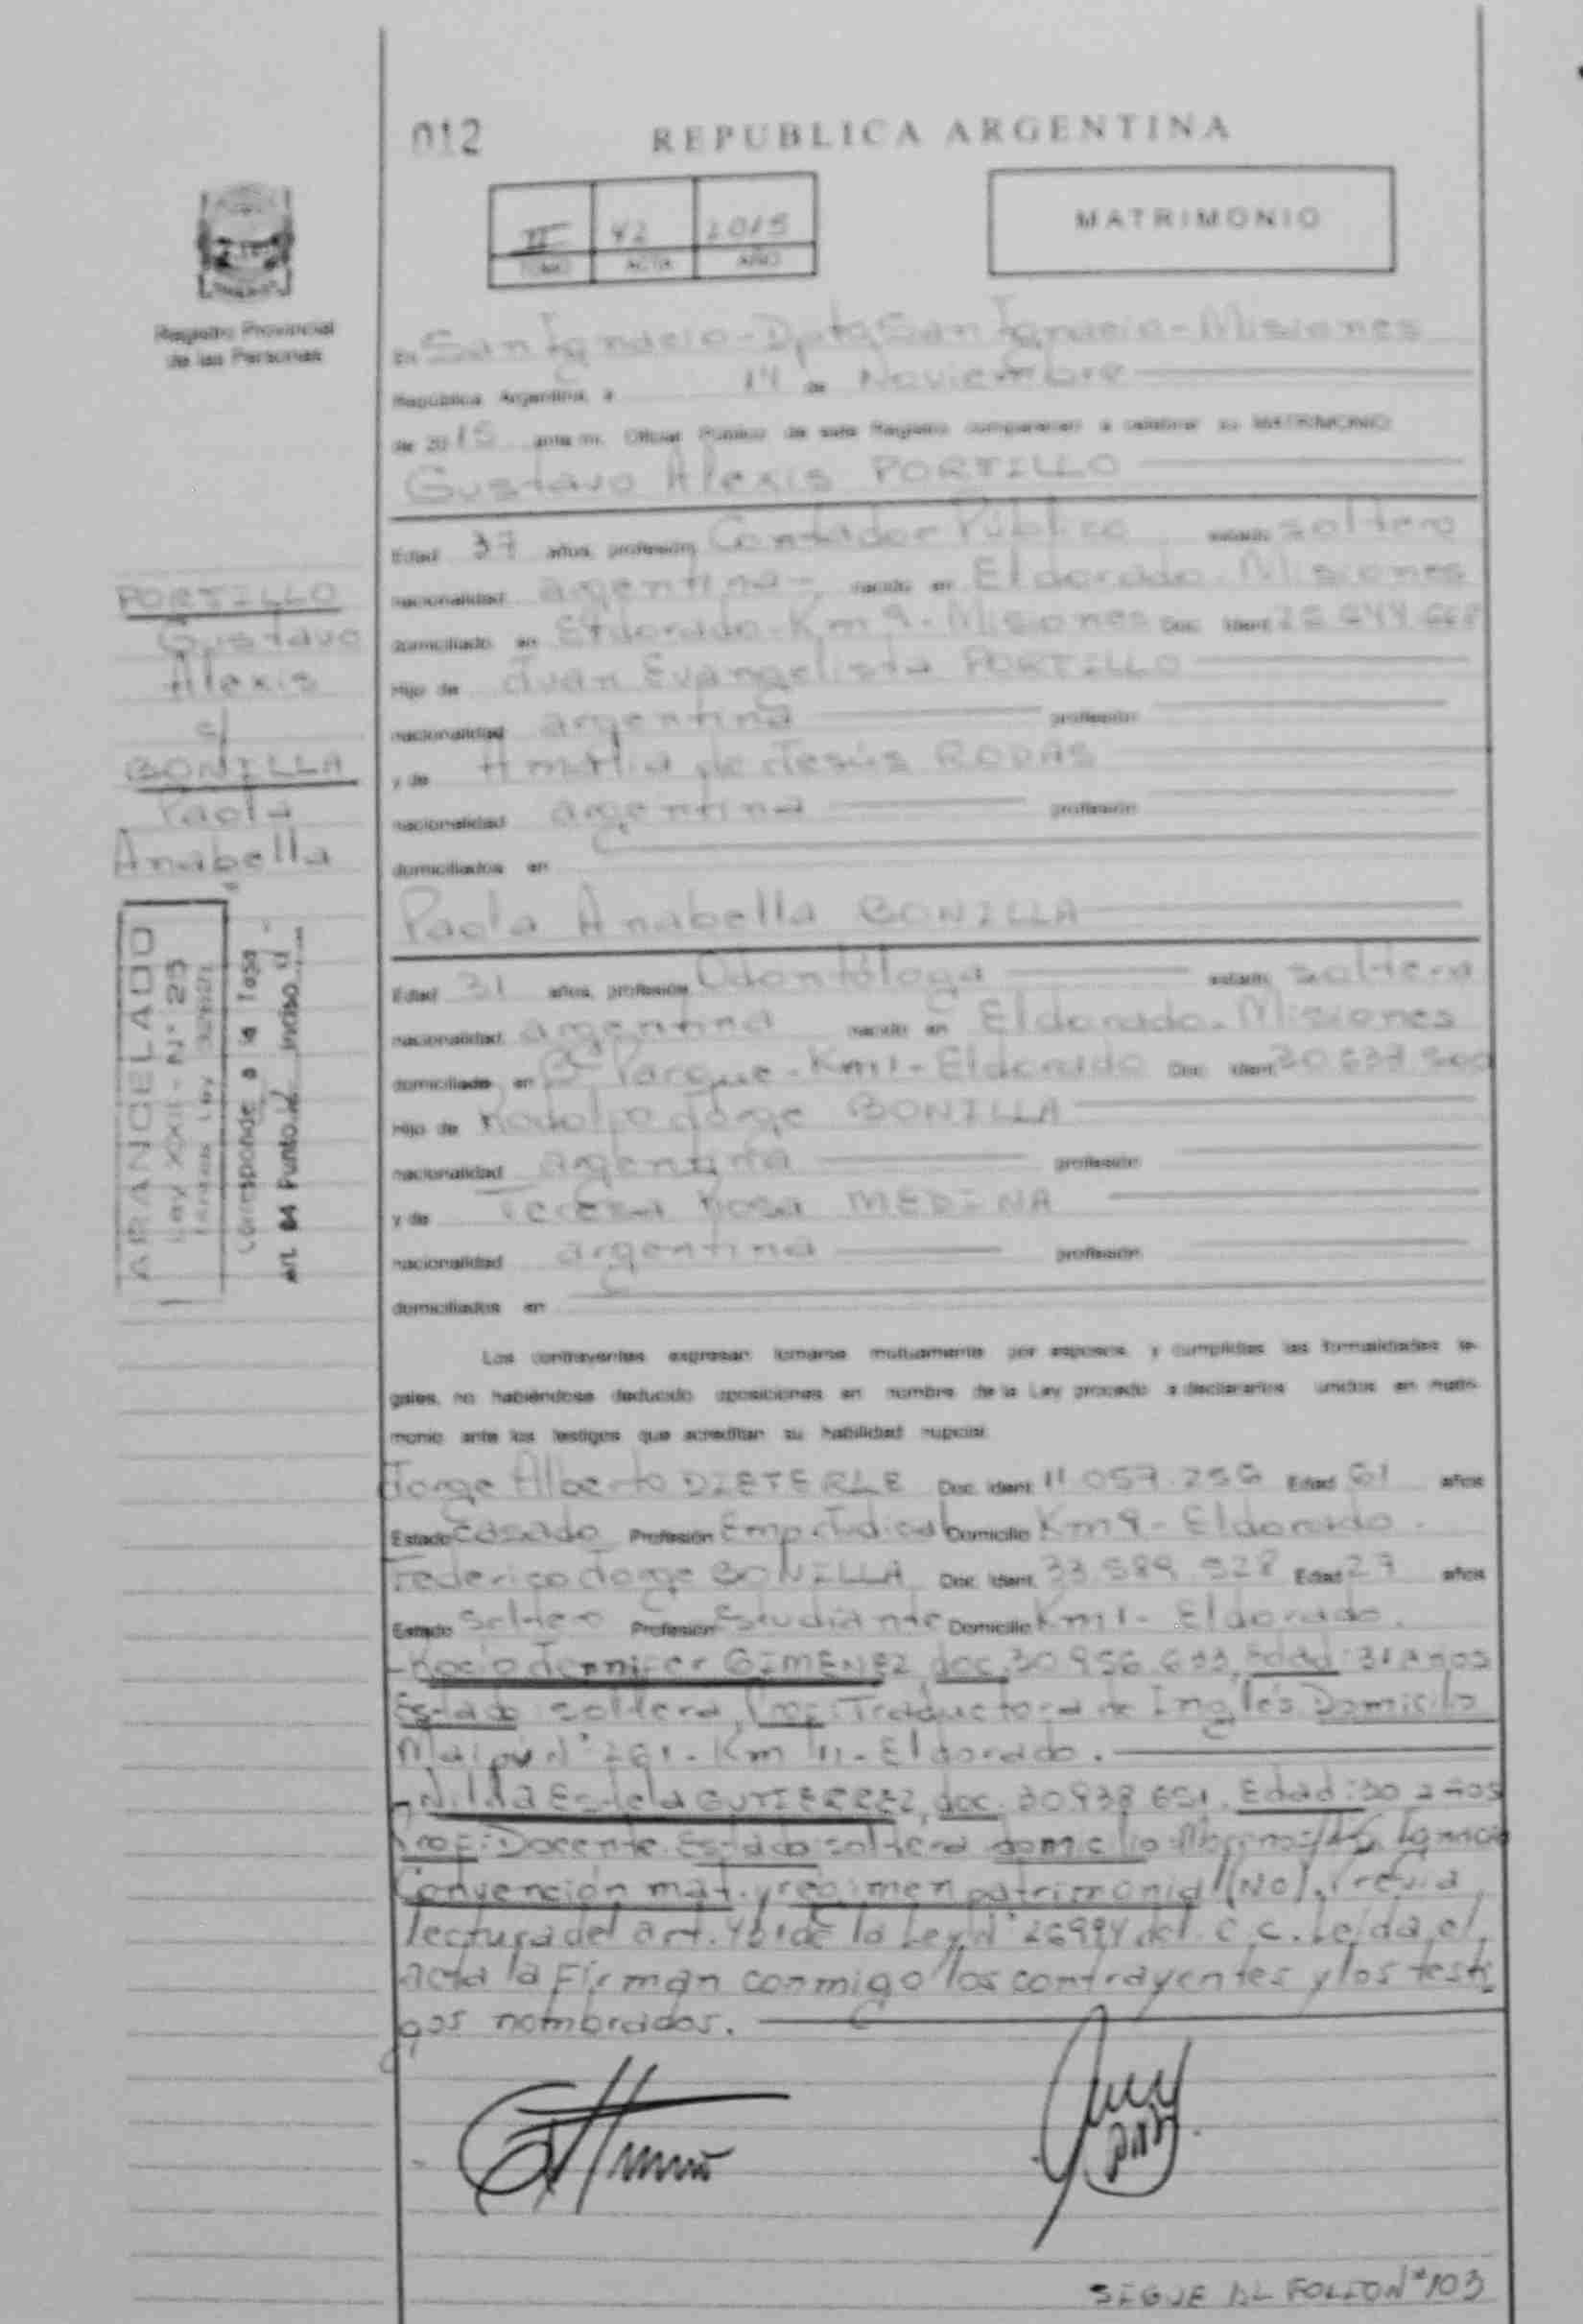 012
REPUBLICA ARGENTINA
II 42 2015
TOMO ACTA AÑO
MATRIMONIO
Registro Provincial
de las Personas
En San Ignacio - Dpto San Ignacio - Misiones
República Argentina, a 14 de Noviembre
de 2015 ante mi, Oficial Público de este Registro comparecen a celebrar su MATRIMONIO
Gustavo Alexis PORTILLO
Edad 37 años, profesión Contador Público estado soltero
nacionalidad argentina - nacido en Eldorado - Misiones
domiciliado en Eldorado - Km 9 - Misiones Doc. Ident.
Hijo de Juan Evangelista PORTILLO
nacionalidad argentina profesión
y de de Jesús RODAS
nacionalidad argentina profesión
domiciliados en
Paola Anabella BONILLA
Edad 31 años, profesión Odontóloga estado soltera
nacionalidad argentina nacido en Eldorado - Misiones
domiciliado en Bº Parque - Km 1 - Eldorado Doc. Ident.
Hijo de Rodolfo Jorge BONILLA
nacionalidad argentina profesión
y de Teresa Rosa MEDINA
nacionalidad argentina profesión
domiciliados en
PORTILLO
Gustavo
Alexis
c/
BONILLA
Paola
Anabella
ARANCELADO
Ley XXII - Nº 25
corresponde a la tasa
Art. 04 Punto inciso
Los contrayentes expresan tomarse mutuamente por esposos, y cumplidas las formalidades le-
gales, no habiéndose deducido oposiciones en nombre de la Ley procedo a declararlos unidos en matri-
monio ante los testigos que acreditan su habilidad nupcial.
Jorge Alberto DIETERLE Doc. Ident. 11.057.256 Edad 61 años
Estado Casado Profesión Emp. Judicial Domicilio Km 9 - Eldorado.
Federico Jorge BONILLA Doc. Ident. 33.589.528 Edad 27 años
Estado Soltero Profesión Estudiante Domicilio Km 1 - Eldorado.
- Rocío Jennifer GIMENEZ, doc. 30.956.633, Edad: 31 años
Estado soltera, Prof: Traductora de Inglés Domicilio
Maipú Nº 261 - Km 11 - Eldorado.
- Nilda Estela GUTIERREZ, doc. 30.938.651. Edad: 30 años
Prof: Docente. Estado soltera domicilio Ignacio
Convención mat. y régimen patrimonial (NO). Previa
lectura del art. 431 de la Ley Nº 26994 del C.C. Leída el
acta la firman conmigo los contrayentes y los testi
gos nombrados.
SIGUE AL FOLIO Nº 103